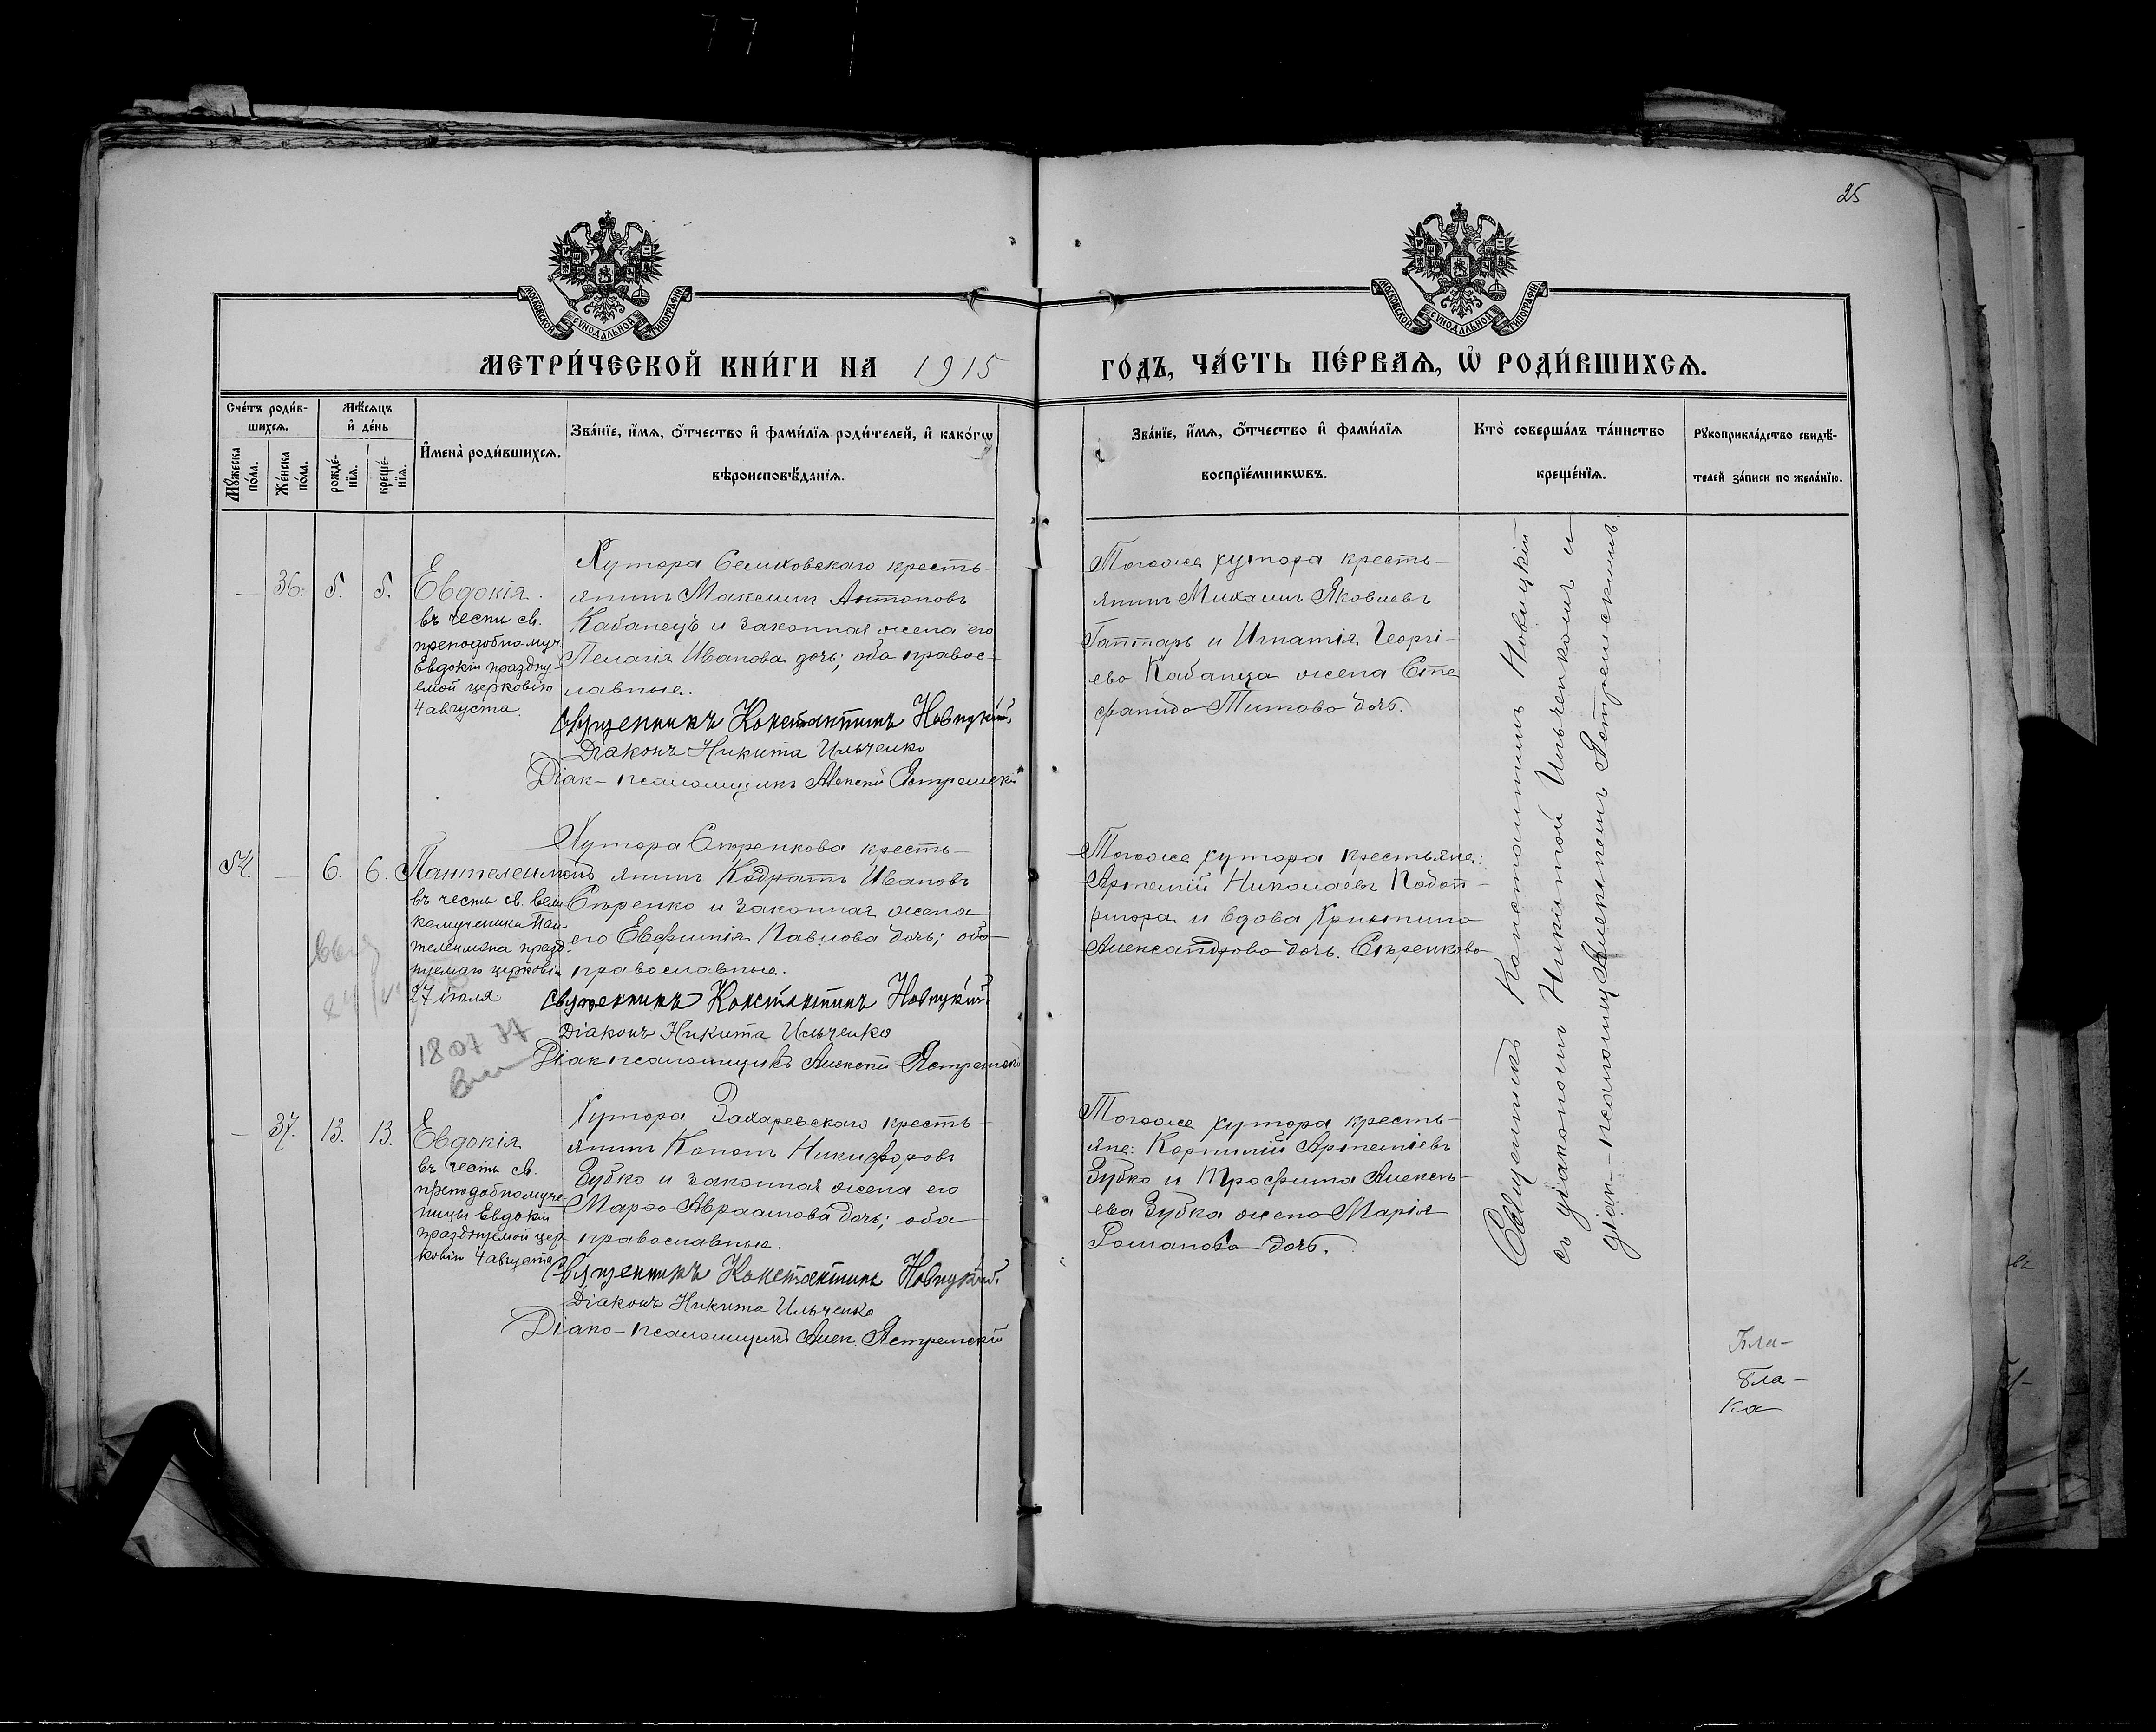 77
25
МОСКОВСКОЙ СѴНОДАЛЬНОЙ ТИПОГРАФІИ
МОСКОВСКОЙ СѴНОДАЛЬНОЙ ТИПОГРАФІИ
МЕТРИ́ЧЕСКОЙ КНИ́ГИ НА 1915 ГО́ДЪ, ЧА́СТЬ ПЕ́РВАѦ, Ѡ҆ РОДИ́ВШИХСѦ.
Сче́тъ роди́в-
шихсѧ.
Мꙋ́жеска по́ла.
Же́нска по́ла.
Мѣ́сѧцъ
и҆ де́нь
рожде́-
нїѧ.
креще́-
нїѧ.
И҆мена̀ роди́вшихсѧ.
Зва́нїе, и҆́мѧ, ѻ҆́тчество и҆ фами́лїѧ роди́телей, и҆ како́гѡ
вѣроисповѣ́данїѧ.
Зва́нїе, и҆́мѧ, ѻ҆́тчество и҆ фами́лїѧ
воспрїе́мникѡвъ.
Кто̀ соверша́лъ та́инство
креще́нїѧ.
Рꙋкоприкла́дство свидѣ́-
телей за́писи по жела́нїю.
— 36. 5. 5.
Евдокія
въ честь св.
преподобно-муч.
Евдокіи праздну-
емой церковію
4 августа.
Хутора Семиховскаго кресть-
янинъ Максимъ Антоновъ
Кабанецъ и законная жена его
Пелагія Иванова дочь; оба правос-
лавные.
Священникъ Константинъ Новицкій.
Діаконъ Никита Ильченко
Діак-псаломщикъ Алексій Ястремскій
Тогоже хутора кресть-
янинъ Михаилъ Яковлевъ
и Игнатія Георгі-
ева Кабанца жена Сте
фанида Титова дочь.
54. — 6. 6.
Пантелеимонъ
въ честь св. вели
комученика Пан-
телеимона празд-
нуемаго церковію
27 іюля
18 07 77
Хутора Сѣренкова кресть-
янинъ Кодратъ Ивановъ
Сѣренко и законная жена
его Евфимія Павлова дочь; оба
православные.
Священникъ Константинъ Новицкій.
Діаконъ Никита Ильченко
Діак псаломщикъ Алексій Ястремскій
Тогоже хутора крестьяне:
Артемій Николаевъ Подоп-
ригора и вдова Христина
Александрова дочь Сѣренкова
— 37. 13. 13.
Евдокія
въ честь св.
преподобномуче-
ницы Евдокіи
празднуемой цер-
ковію 4 августа
Хутора Захаревскаго кресть-
янинъ Кононъ Никифоровъ
Зубко и законная жена его
Марфа Авраамова дочь; оба
православные.
Священникъ Константинъ Новицкій.
Діаконъ Никита Ильченко
Діако-псаломщикъ Алек. Ястремскій
Тогоже хутора кресть-
яне: Корнилій Артеміевъ
Зубко и Трофима Алексѣ-
ева Зубка жена Марія
Романова дочь.
Священникъ Константинъ Новицкій
съ діакономъ Никитой Ильченкомъ и
діак-псаломщ Алексѣемъ Ястремскимъ.